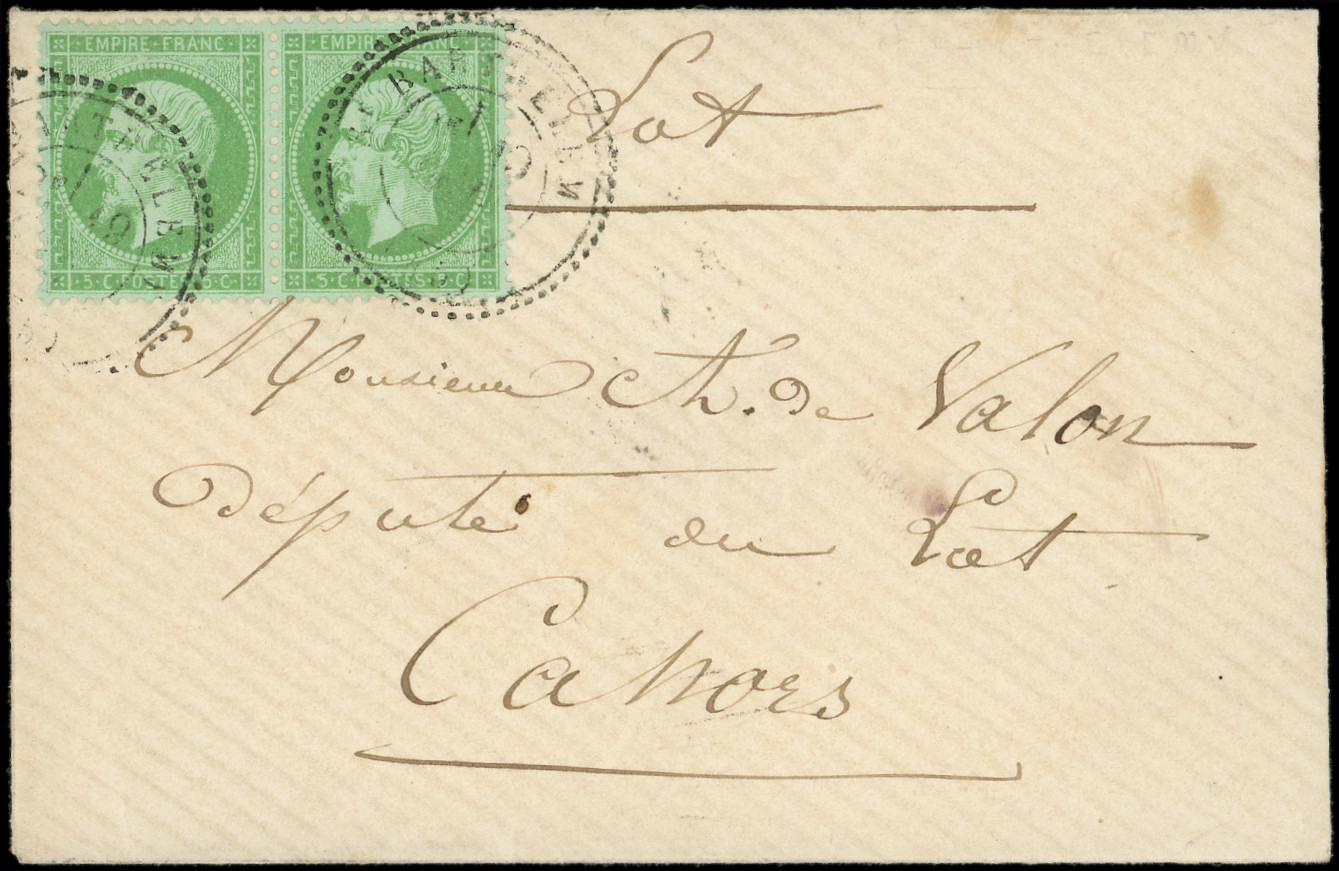 EMPIRE·FRANC EMPIRE·FRANC
5·C·POSTES·5·C· 5·C·POSTES·5·C
Lot
Monsieur Ch. de Valon
Député du Lot
Cahors